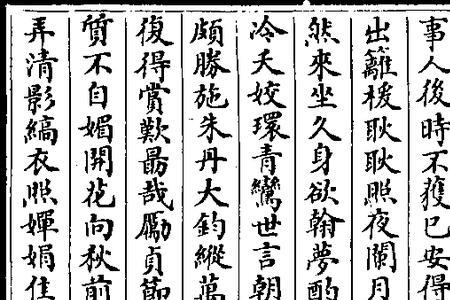 事人後時不獲已安得
出籬楥耿耿照夜闌月
然來坐久身欲翰夢酌
冷夭姣環青鸞世言朝
頗勝施朱丹大鈞縱萬
復得賞歎曷哉勵貞節
質不自媚開花向秋前
弄清影縞衣照嬋娟佳